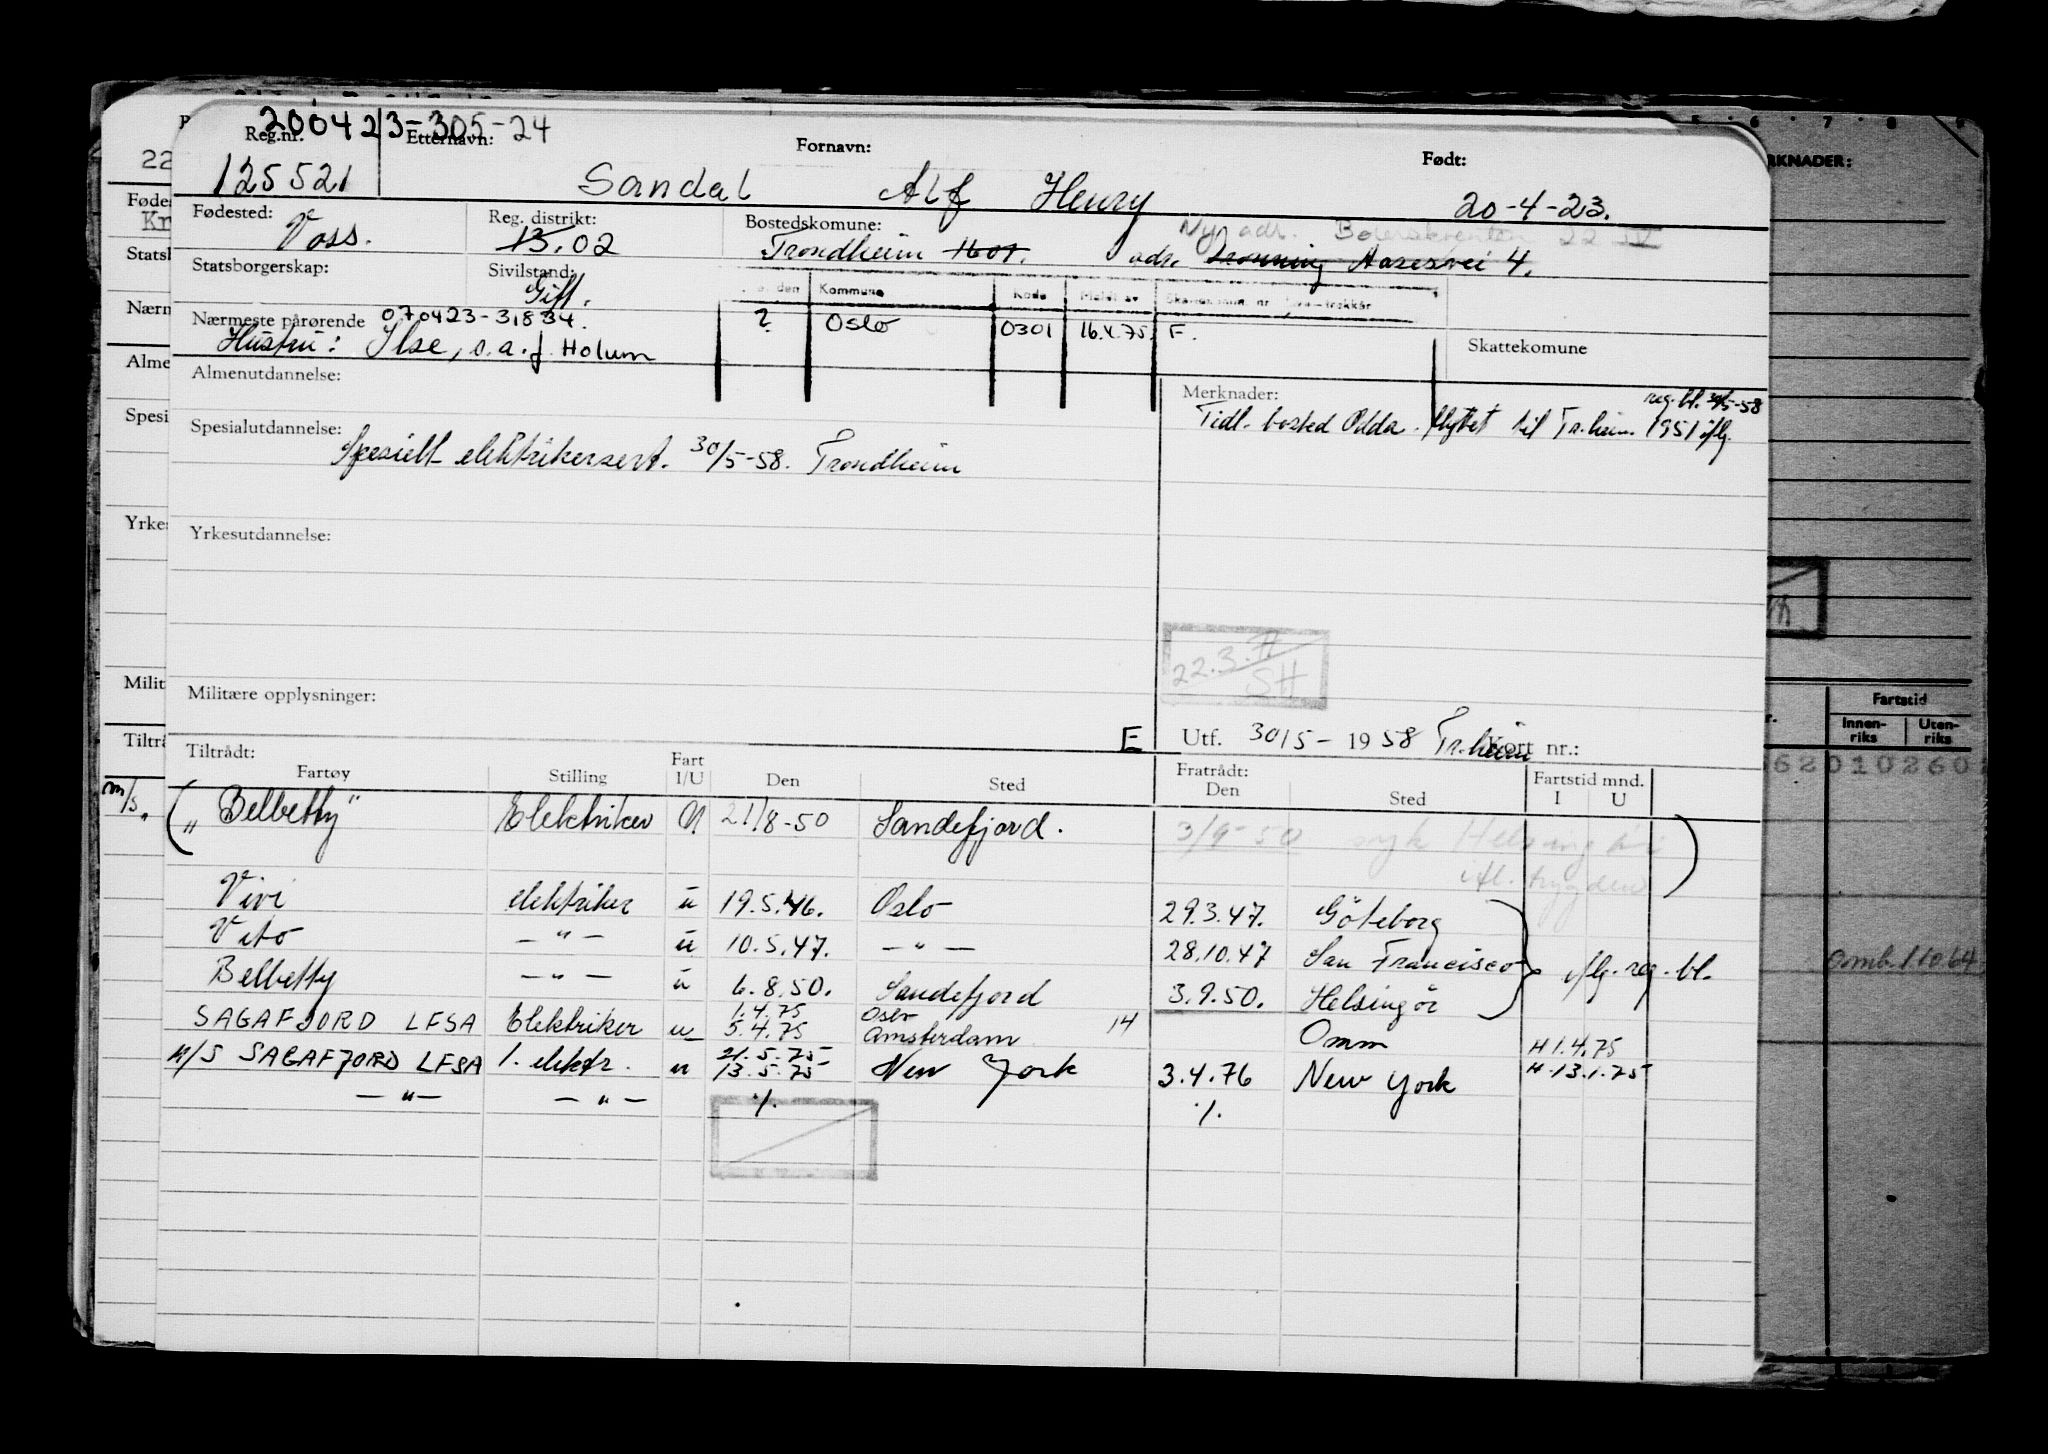 200423-305-24
Reg.nr. Etternavn: Fornavn: Født:
125521 Sandal Alf Henry 20-4-23.
Fødested: Reg. distrikt: Bostedskomune: Ny adr.
Voss. 13.02 Trondheim 1601. adr. Dronning Aasesvei 4.
Statsborgerskap: Sivilstand:
Gift.
Kommune Kode Meldt av
Nærmeste pårørende 070423-31834. ? Oslo 0301 16.4.75. F.
Hustru: Ilse, o.a.f. Holum
Skattekomune
Almenutdannelse: Merknader: reg. bl. 30/5-58
Tidl. bosted Odda. flyttet til Tr.heim 1951 iflg.
Spesialutdannelse:
Spesielt elektrikersert. 30/5-58. Trondheim
Yrkesutdannelse:
22.3.77
SH
Militære opplysninger:
E Utf. 30/5-1958 Tr.heim Kort nr.:
Tiltrådt: Fratrådt:
Fartøy Stilling Fart I/U Den Sted Den Sted Fartstid mnd. I U
m/s. („Belbetty” Elektriker U 21/8-50 Sandefjord. 3/9-50 syk Helsingör
ifl. trygden)
Vivi elektriker u 19.5.46. Oslo 29.3.47. Göteborg
Vito — " — u 10.5.47. — " — 28.10.47 San Francisco iflg. reg. bl.
Belbetty — " — u 6.8.50. Sandefjord 3.9.50. Helsingör
1.4.75 Oslo
SAGAFJORD LFSA Elektriker u 5.4.75 Amsterdam 14 Omm H 1.4.75
21.5.75
M/S SAGAFJORD LFSA 1. elektr. u 13.5.75 New York 3.4.76 New York H 13.1.75
— " — — " — ./. ./.
RKNADER:
Fartstid
Innen-riks Uten-riks
62010260
omb. 1 10 64